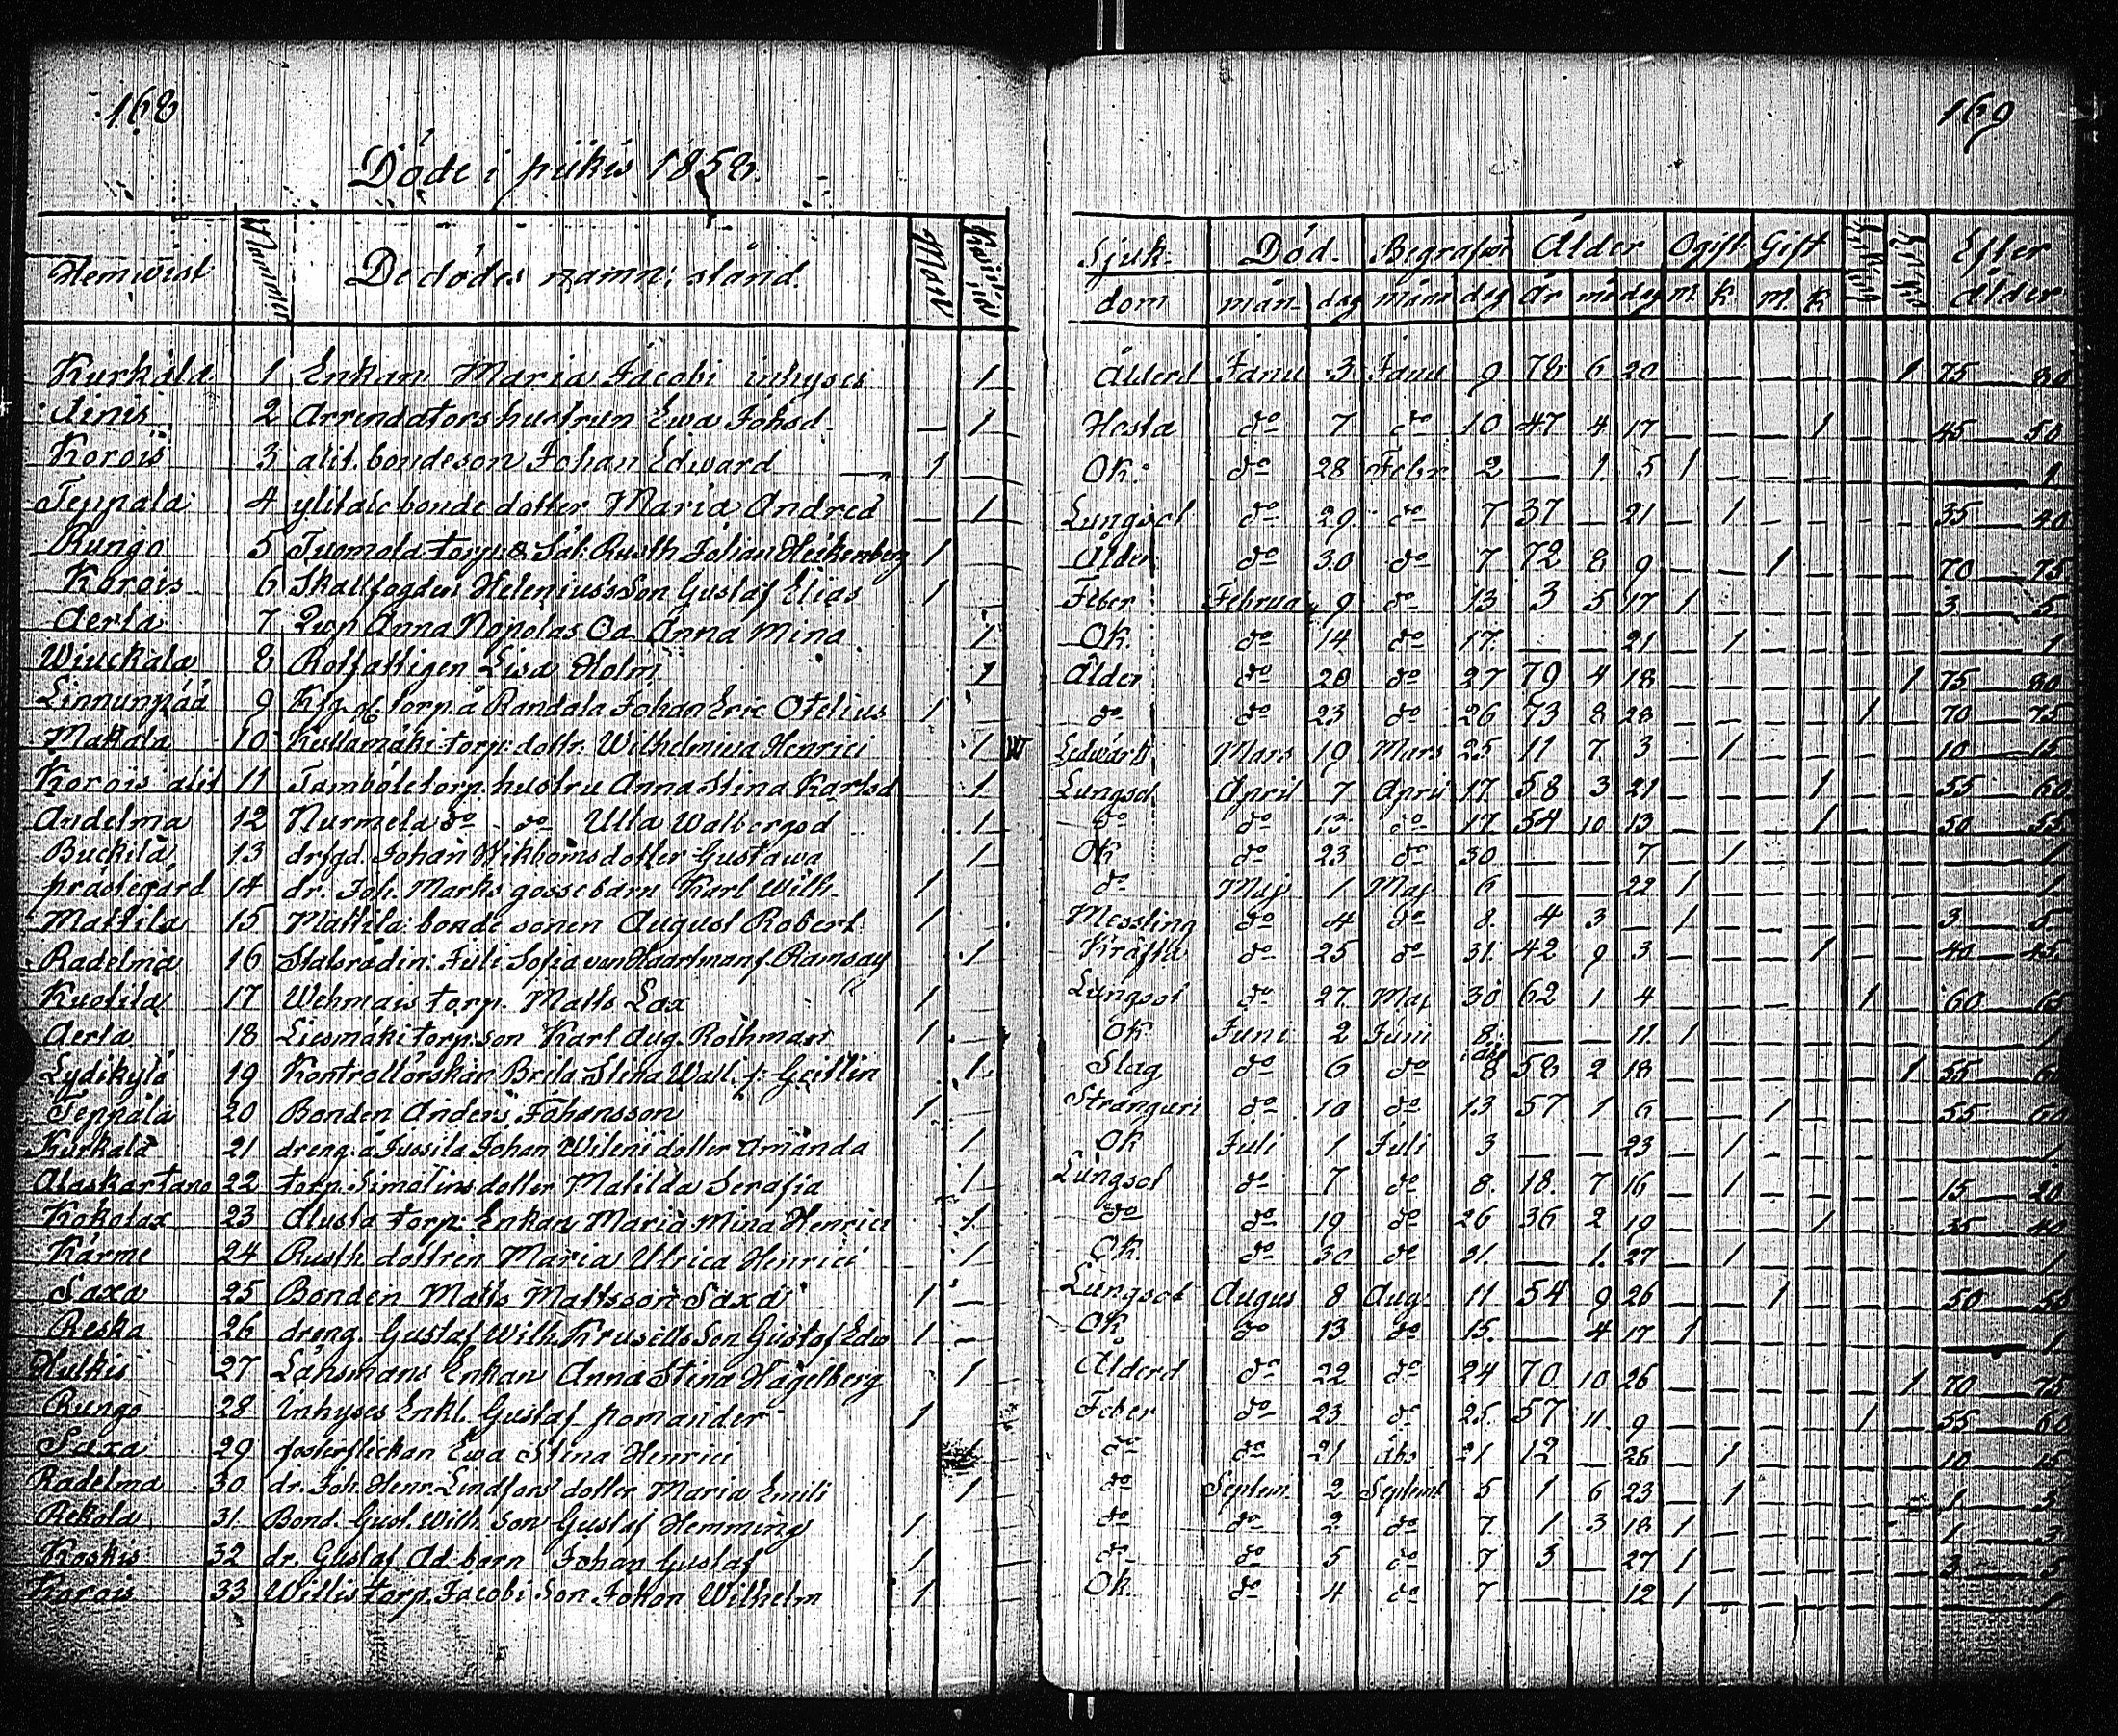 168
Döde i piikis 1858.
Hemvist Nummer De dödes namn, stånd. Mank Qvink
Kurkala 1 Enkan Maria Jacobi inhyses 1
Ainis 2 Arrendators hustrun Ewa Johsd — 1
Korois 3 alit. bondeson Johan Edward 1 —
Teppala 4 ylitalo bonde dotter Maria Andred — 1
Rungo 5 Tuomola torp: & Sal: Rusth Johan Heikenberg 1
Korois 6 Skallfogden Helenius's Son Gustaf Elias 1
Aerla 7 Qwp Anna Nopolas Oa Anna Mina 1
Wiuckala 8 Rotfattigen Lisa Holm 1
Linnunpää 9 torp. å Randala Johan Eric Otelius 1
Makala 10 Kullamäki torp: dottr. Wilhelmina Henrici 1
Korois alit 11 Tambole torp. hustru Anna Stina Karlsd 1
Andelma 12 Nurmela do do Ulla Walbergsd 1
Buckila 13 drfgd. Johan Wikboms dotter Gustawa 1
prästegård 14 dr. Joh. Marks gossebarn Karl Wilh. 1
Mattila 15 Mattila bonde sonen August Robert 1
Radelma 16 Statsrådin: Juli Sofia von Haartman f. Ramsay 1
Kuolila 17 Wehmais torp. Matts Lax 1
Aerla 18 Liesmäki torp. son Karl Aug. Rothman 1
Lydikylä 19 Kontrollörskan Brita Stina Wall. f: Geitlin 1
Teppala 20 Bonden Anders Johansson 1 —
Kurkala 21 dreng. å Jussila Johan Wileni dotter Amanda 1
Alaskartano 22 torp. Simolins dotter Matilda Serafia 1
Kokolax 23 Alusta torp: Enkan Maria Mina Henrici 1
Kärme 24 Rusth. dottren Maria Ulrica Henrici 1
Saxa 25 Bonden Matts Mattsson Saxa 1 —
Reska 26 dreng. Gustaf Wilh. Krusells Son Gustaf Edw 1 —
Hulkis 27 Länsmans Enkan Anna Stina Hägelberg 1
Rungo 28 Inhyses Enkl. Gustaf pomander 1
Saxa 29 fosterflickan Ewa Stina Henrici 1
Radelma 30 dr. Joh. Henr. Lindfors' dotter Maria Emili 1
Rekola 31 Bond. Gust. Wilh. Son Gustaf Hemming 1
Koskis 32 dr. Gustaf Ad. barn Johan Gustaf 1
Korois 33 Willis torp. Jacobi Son Johan Wilhelm 1
169
Sjuk- Död. Begrafven Ålder Ogift Gift Efter
dom mån- dag månr dag år må dag M. K. M. K ålder
Ålderd Janu 3 Janu 9 78 6 20 — — — — — 1 75 — 80
Hosta do 7 do 10 47 4 17 — — — 1 — — 45 — 50
Ok: do 28 Febr. 2 — 1. 5 1 — — — — — — 1
Lungsot do 29 do 7 37 — 21 — 1 — — — — 35 — 40
Ålder do 30 do 7 72 8 9 — — 1 — — — 70 — 75
Feber Februa 9 do 13 3 5 17 1 — — — — — 3 — 5
Ok. do 14 do 17. — — 21 — 1 — — — — — 1
Ålder do 20 do 27 79 4 18 — — — — — 1 75 — 80
do do 23 do 26 73 8 28 — — — — 1 — 70 — 75
Mars 19 Mars 25 11 7 3 — 1 — — — — 10 — 15
Lungsot April 7 April 17 58 3 21 — — — 1 — — 55 — 60
do do 13 do 17 54 10 13 — — — 1 — — 50 — 55
Ok do 23 do 30 — — 7 — 1 — — — — — 1
do Maj 1 Maj 6 — — 22 1 — — — — — — 1
Messling do 4 do 8. 4 3 — 1 — — — — — 3 — 5
Kräfta do 25 do 31. 42 9 3 — — — 1 — — 40 — 45
Lungsot do 27 Maj 30 62 1 4 — — — — 1 — 60 — 65
Ok Juni 2 Juni 8. — — 11. 1 — — — — — — 1
Slag do 6 do 8 58 2 18 — — — — — 1 55 — 60
Stranguri do 10 do 13 57 1 6 — — 1 — — — 55 — 60
Ok Juli 1 Juli 3 — — 23 — 1 — — — — — 1
Lungsot do 7 do 8. 18. 7 16 — 1 — — — — 15 — 20
do do 19 do 26 36 2 19 — — — 1 — — 35 — 40
Ok do 30 do 31. — 1. 27 — 1 — — — — — 1
Lungsot Augus 8 Aug. 11 54 9 26 — — 1 — — — 50 — 55
Ok do 13 do 15. — 4 17 1 — — — — — — 1
Ålderd do 22 do 24 70 10 26 — — — — — 1 70 — 75
Feber do 23 do 25. 57 11. 9 — — — — 1 — 55 — 60
do do 21 åbo 21 12 — 26 — 1 — — — — 10 — 15
do Septem. 2 Septemb 5 1 6 23 — 1 — — — — 1 — 3
do do 2 do 7. 1 3 18 1 — — — — — 1 — 3
do do 5 do 7 3 — 27 1 — — — — — 3 — 5
Ok. do 4 do 7 — — 12 1 — — — — — — 1